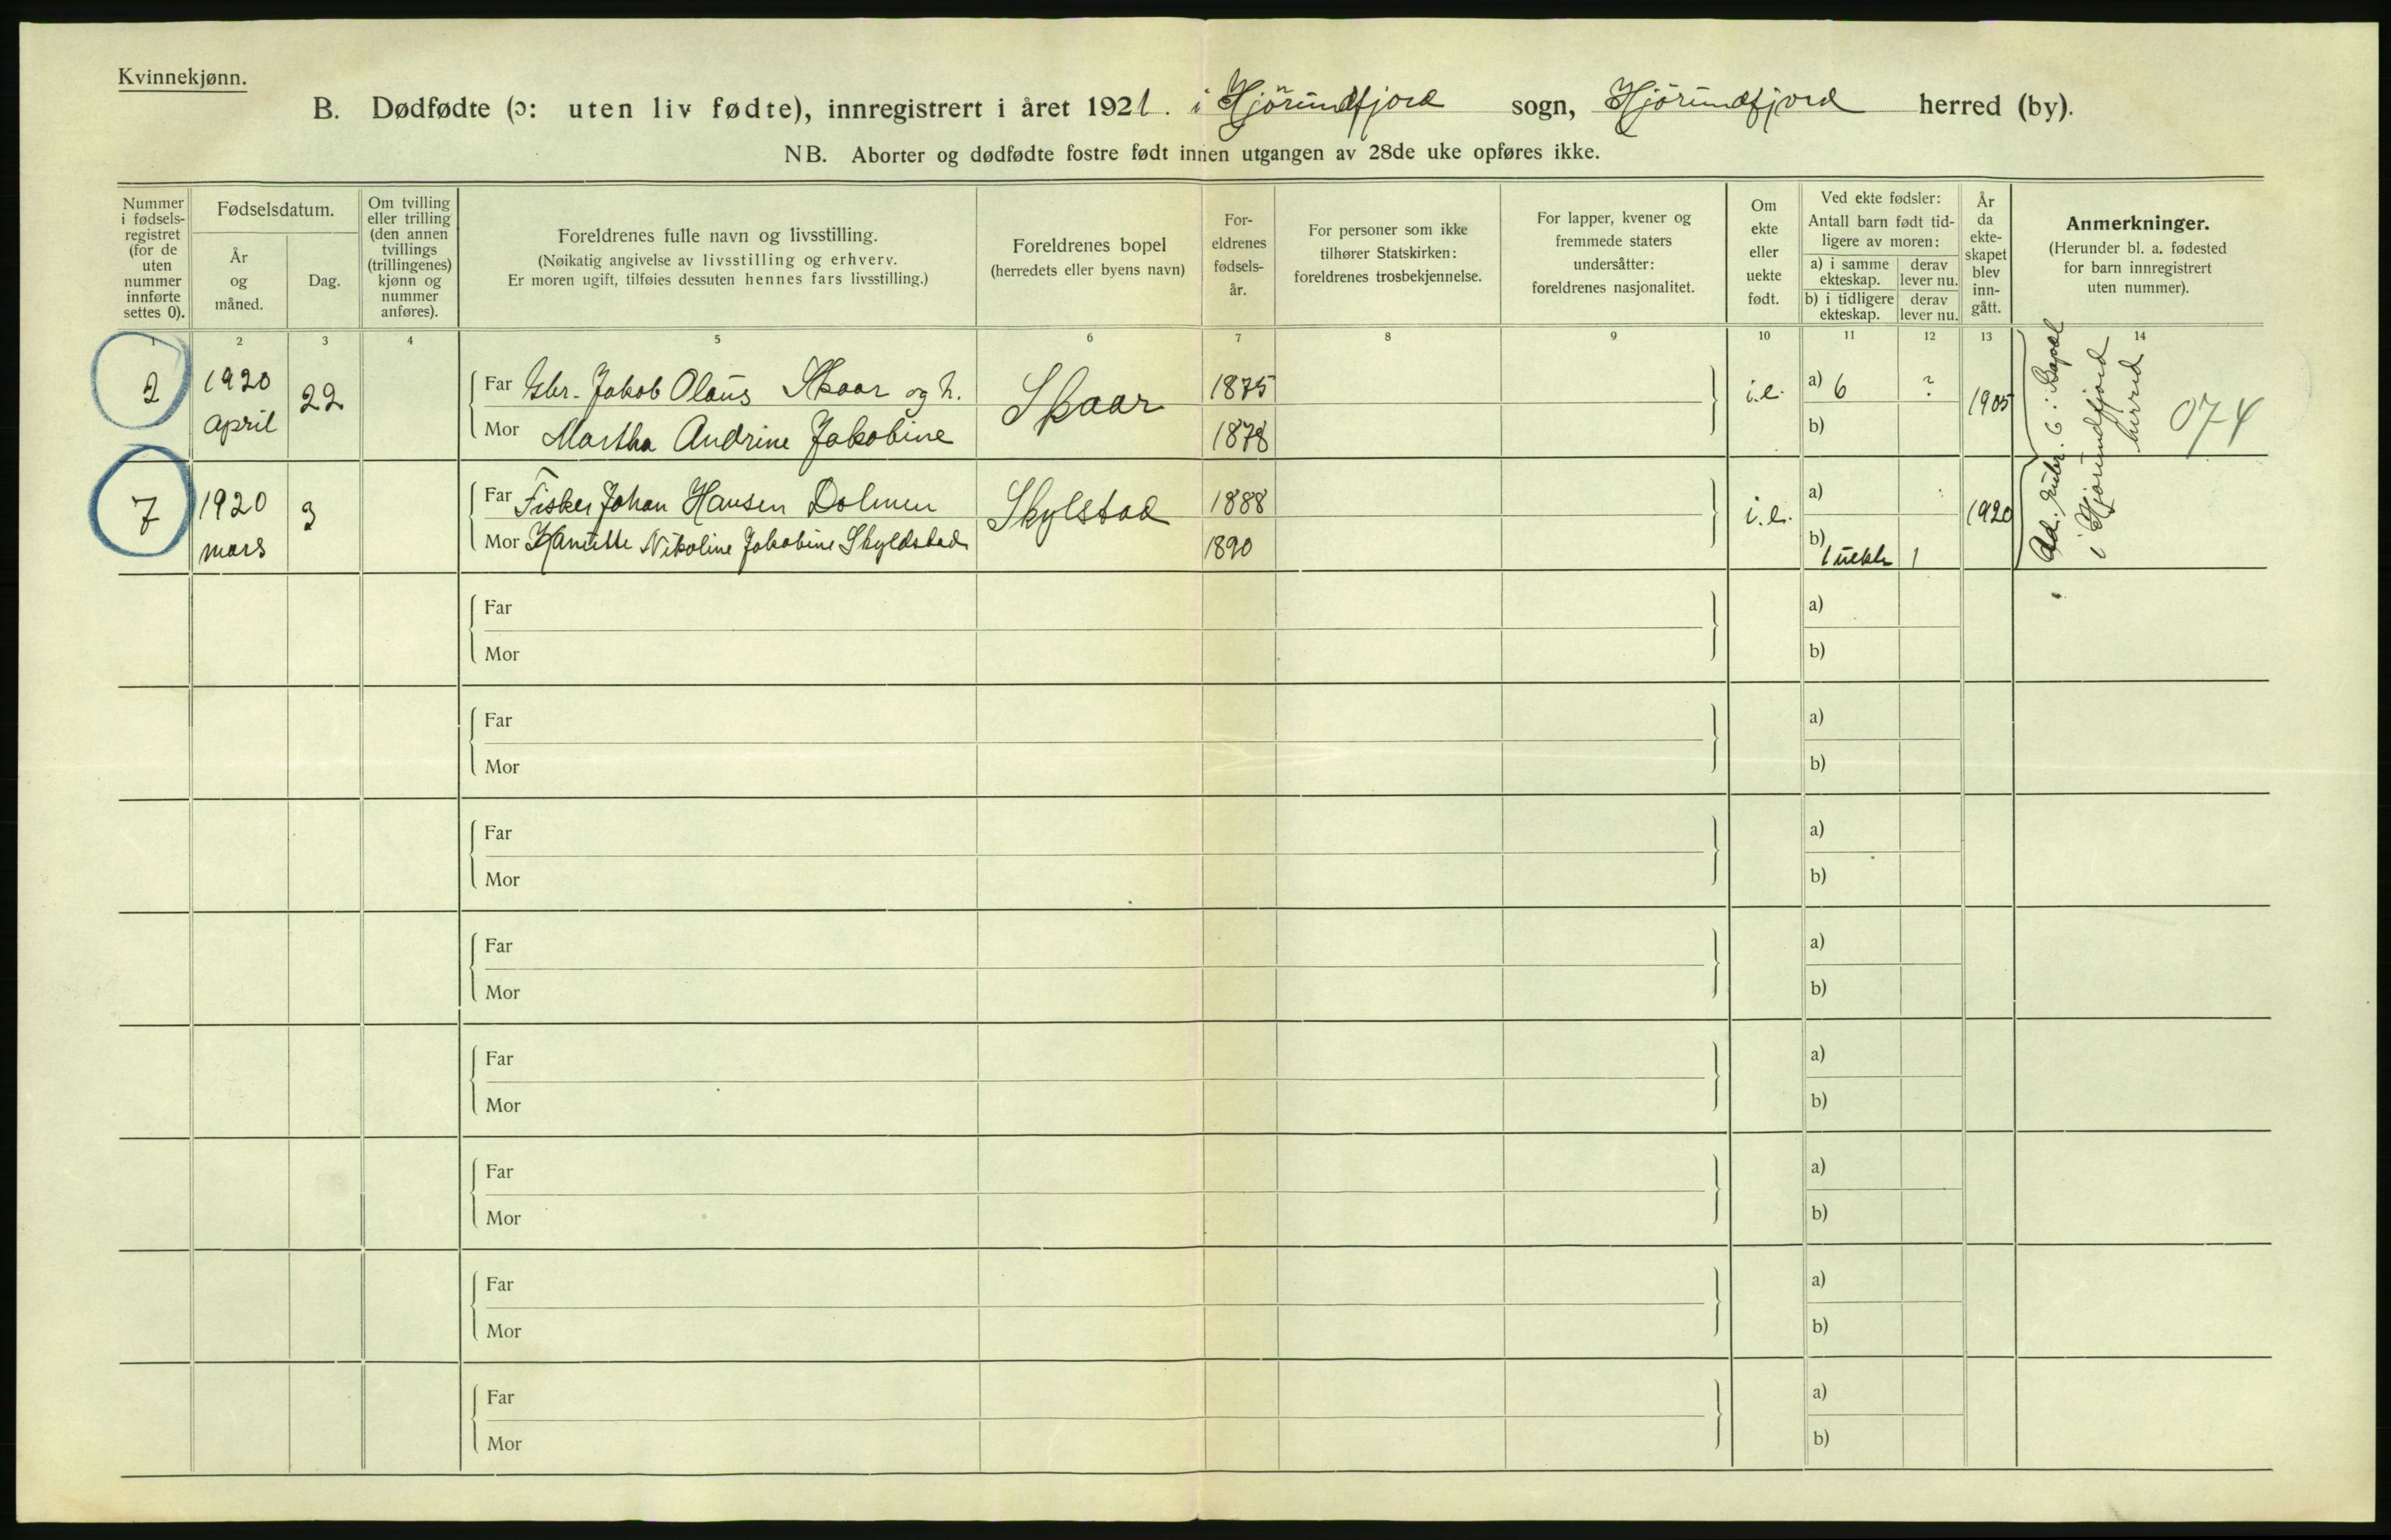 Kvinnekjønn.
B. Dødfødte (ɔ: uten liv fødte), innregistrert i året 1921. i Hjørundfjord sogn, Hjørundfjord herred (by).
NB. Aborter og dødfødte fostre født innen utgangen av 28de uke opføres ikke.
Nummer
i fødsels-
registret
(for de
uten
nummer
innførte
settes 0).
Fødselsdatum.
År
og
måned.
Dag.
Om tvilling
eller trilling
(den annen
tvillings
(trillingenes)
kjønn og
nummer
anføres).
Foreldrenes fulle navn og livsstilling.
(Nøikatig angivelse av livsstilling og erhverv.
Er moren ugift, tilføies dessuten hennes fars livsstilling.)
Foreldrenes bopel
(herredets eller byens navn)
For-
eldrenes
fødsels-
år.
For personer som ikke
tilhører Statskirken:
foreldrenes trosbekjennelse.
For lapper, kvener og
fremmede staters
undersåtter:
foreldrenes nasjonalitet.
Om
ekte
eller
uekte
født.
Ved ekte fødsler:
Antall barn født tid-
ligere av moren:
a) i samme
ekteskap.
derav
lever nu.
b) i tidligere
ekteskap.
derav
lever nu.
År
da
ekte-
skapet
blev
inn-
gått.
Anmerkninger.
(Herunder bl. a. fødested
for barn innregistrert
uten nummer).
1 2 3 4 5 6 7 8 9 10 11 12 13 14
2 1920 april 22
Far Gbr. Jakob Olaus Skaar og h. Skaar 1875 i.e. a) 6 ? 1905
Mor Martha Andrine Jakobine 1878 b)
Ad. rubr. 6: Bopæl
i Hjørundfjord
herred
074
7 1920 mars 3
Far Fisker Johan Hansen Dolmen Skylstad 1888 i.e. a) 1920
Mor Hanette Nikoline Jakobine Skyldstad 1890 b) 1 uekte 1
Far a)
Mor b)
Far a)
Mor b)
Far a)
Mor b)
Far a)
Mor b)
Far a)
Mor b)
Far a)
Mor b)
Far a)
Mor b)
Far a)
Mor b)